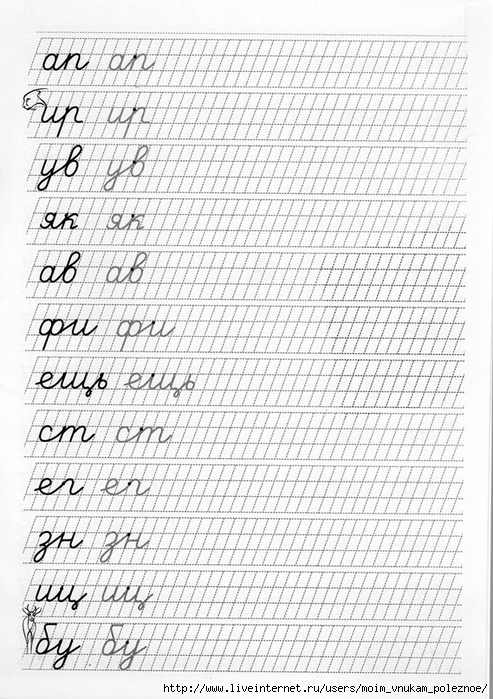 ап ап
ир ир
ув ув
як як
ав ав
фи фи
ещь ещь
ст ст
ег ег
зн зн
иц иц
бу бу
http://www.liveinternet.ru/users/moim_vnukam_poleznoe/